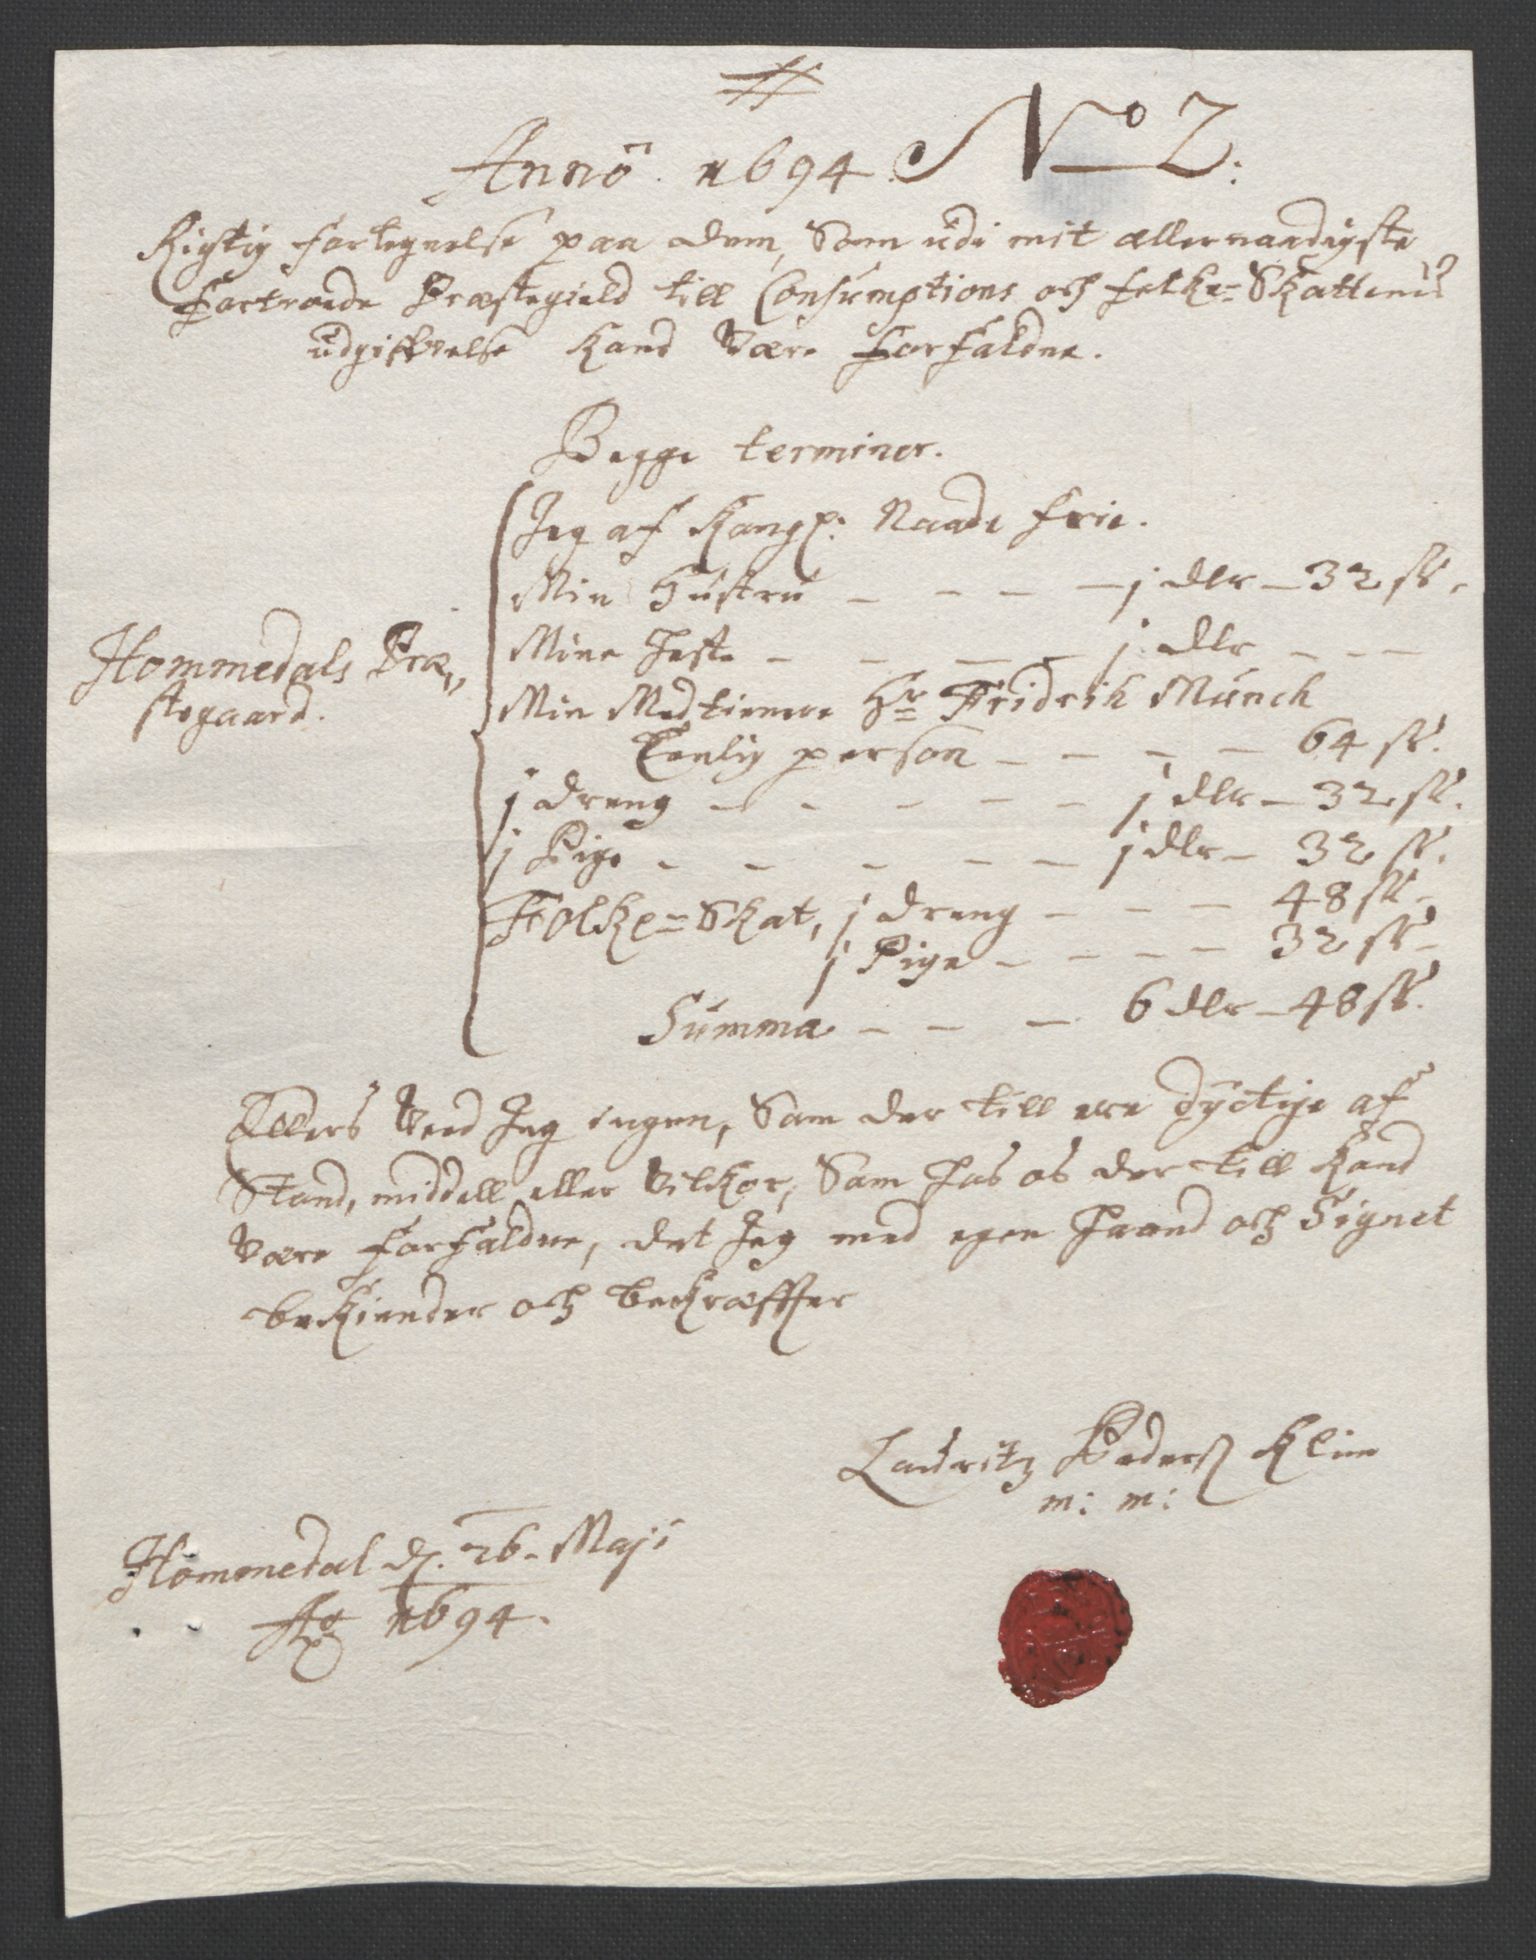 Anno 1694. No 2.
Rigtig fortegnelse paa dem, Som udi mit allernaadigste
fortroede Præstegield till Consumptions och folke-Skattenis
udgiffvelse kand være forfaldne.
Begge terminer.
Jeg af Kongl: Naade frie.
Min Hustru - - - - j dlr - 32 sk.
Mine Heste - - - - j dlr - - -
Hommedals Præ-
stegaard.
Min Medtienere Hr Fridrik Munch
Eenlig person - - - - 64 sk.
j dreng - - - - - j dlr - 32 sk.
j Pige - - - - - j dlr - 32 sk.
Folke-Skat, j dreng - - - 48 sk.
j Pige - - - - 32 sk.
Summa - - - 6 dlr - 48 sk.
Ellers veed Jeg ingen, Som der till ere dyctige af
Stand, middell eller vilkor, Som hos os der till kand
være forfaldne, det Jeg med egen Haand och Signet
bekiender och bekræffter
Lauritz Pederß Klim
m: m:
Hommedal d. 26. Maji
Ao 1694.